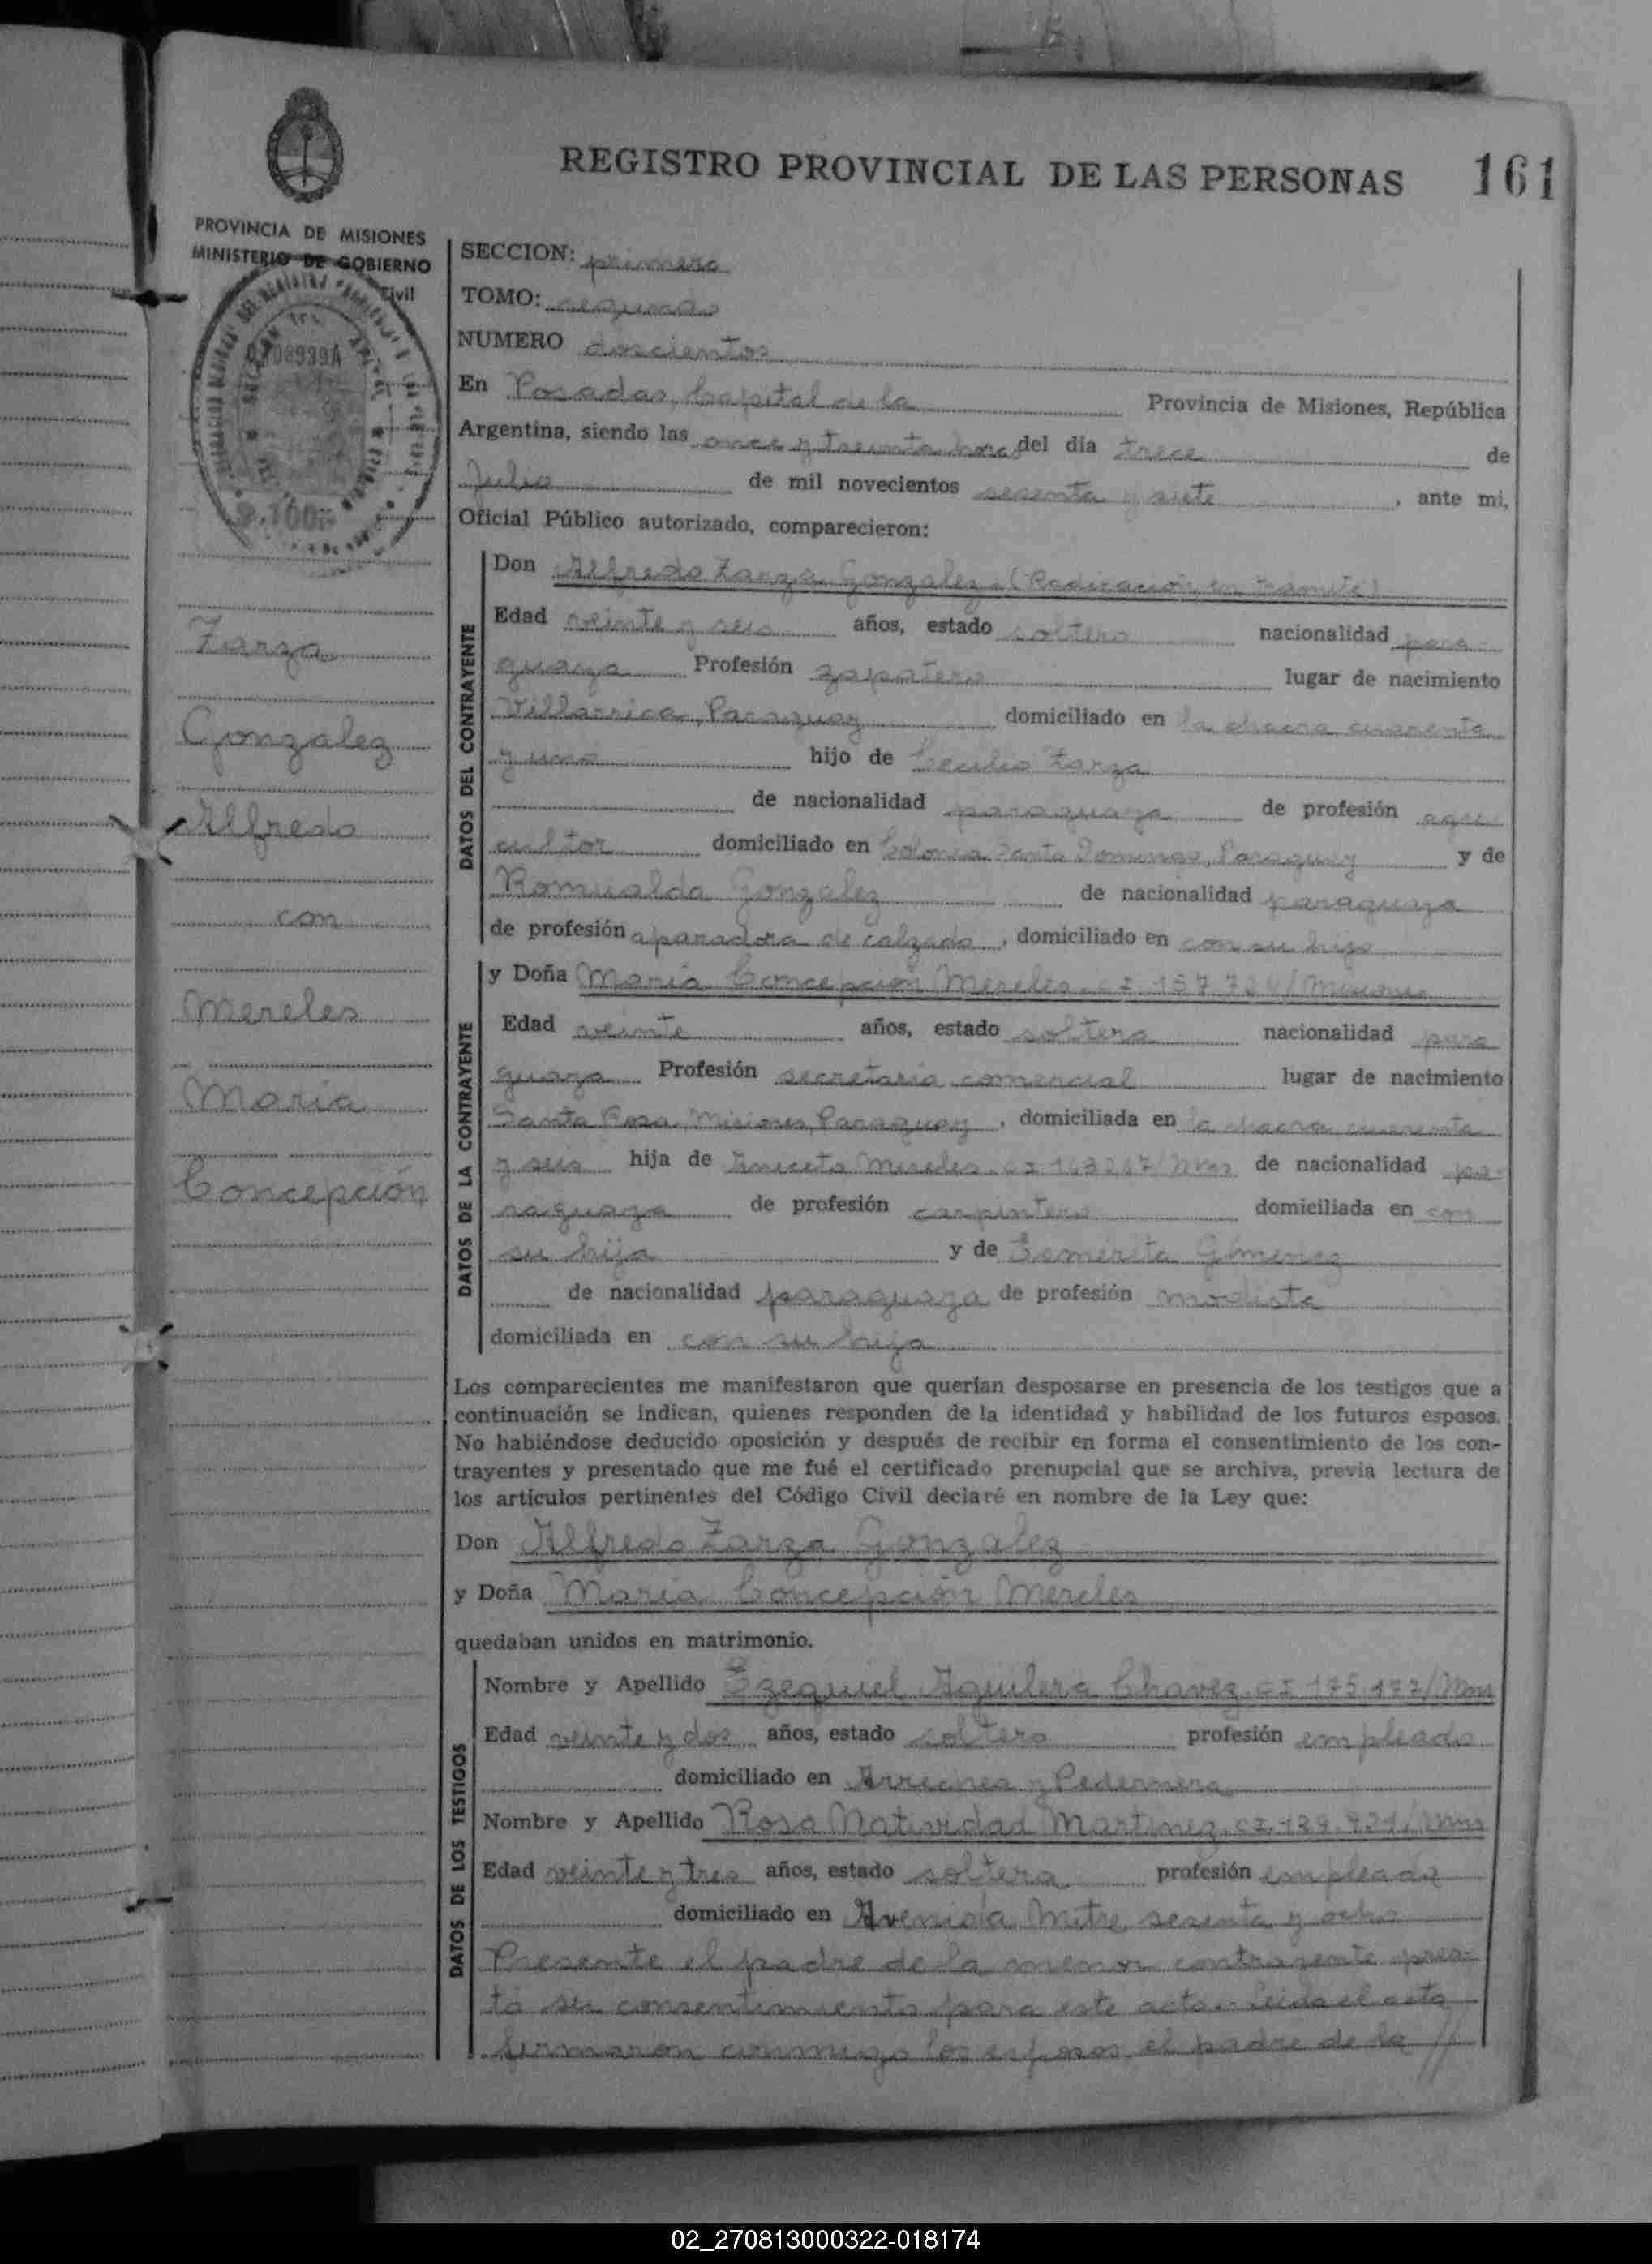 REGISTRO PROVINCIAL DE LAS PERSONAS 161
PROVINCIA DE MISIONES
MINISTERIO DE GOBIERNO
Civil
SECCION: primera
TOMO: segundo
NUMERO doscientos
En Posadas, Capital de la Provincia de Misiones, República
Argentina, siendo las once y treinta horas del día trece de
Julio de mil novecientos sesenta y siete, ante mi,
Oficial Público autorizado, comparecieron:
DATOS DEL CONTRAYENTE
Don Alfredo Zarza Gonzalez - (Radicación en tramite)
Edad veinte y seis años, estado soltero nacionalidad para
guaya Profesión zapatero lugar de nacimiento
Villarrica, Paraguay domiciliado en la chacra cuarenta
y uno hijo de Cecilio Zarza
de nacionalidad paraguaya de profesión agri
cultor domiciliado en Colonia Santo Domingo, Paraguay y de
Romualda Gonzalez de nacionalidad paraguaya
de profesión aparadora de calzado, domiciliado en con su hijo
Zarza
Gonzalez
Alfredo
con
Mereles
Maria
Concepción
DATOS DE LA CONTRAYENTE
y Doña Maria Concepción Mereles. CI 157.724/Misiones
Edad veinte años, estado soltera nacionalidad para
guaya Profesión secretaria comercial lugar de nacimiento
Santa Rosa, Misiones, Paraguay, domiciliada en la chacra cuarenta
y seis hija de Aniceto Mereles. CI 163267/Mnes de nacionalidad pa-
raguaya de profesión carpintero domiciliada en con
su hija y de Esmerita Gimenez
de nacionalidad paraguaya de profesión modista
domiciliada en con su hija
Los comparecientes me manifestaron que querían desposarse en presencia de los testigos que a
continuación se indican, quienes responden de la identidad y habilidad de los futuros esposos.
No habiéndose deducido oposición y después de recibir en forma el consentimiento de los con-
trayentes y presentado que me fué el certificado prenupcial que se archiva, previa lectura de
los artículos pertinentes del Código Civil declaré en nombre de la Ley que:
Don Alfredo Zarza Gonzalez
y Doña Maria Concepción Mereles
quedaban unidos en matrimonio.
DATOS DE LOS TESTIGOS
Nombre y Apellido Ezequiel Aguilera Chavez. CI 175.177/Mnes
Edad veinte y dos años, estado soltero profesión empleado
domiciliado en Arrechea y Pedernera
Nombre y Apellido Rosa Natividad Martinez. CI. 129.921/Mnes
Edad veinte y tres años, estado soltera profesión empleada
domiciliado en Avenida Mitre sesenta y ocho
Presente el padre de la menor contrayente pres-
tó su consentimiento para este acto.- Leida el acta
firmaron conmigo los esposos el padre de la //
02_270813000322-018174